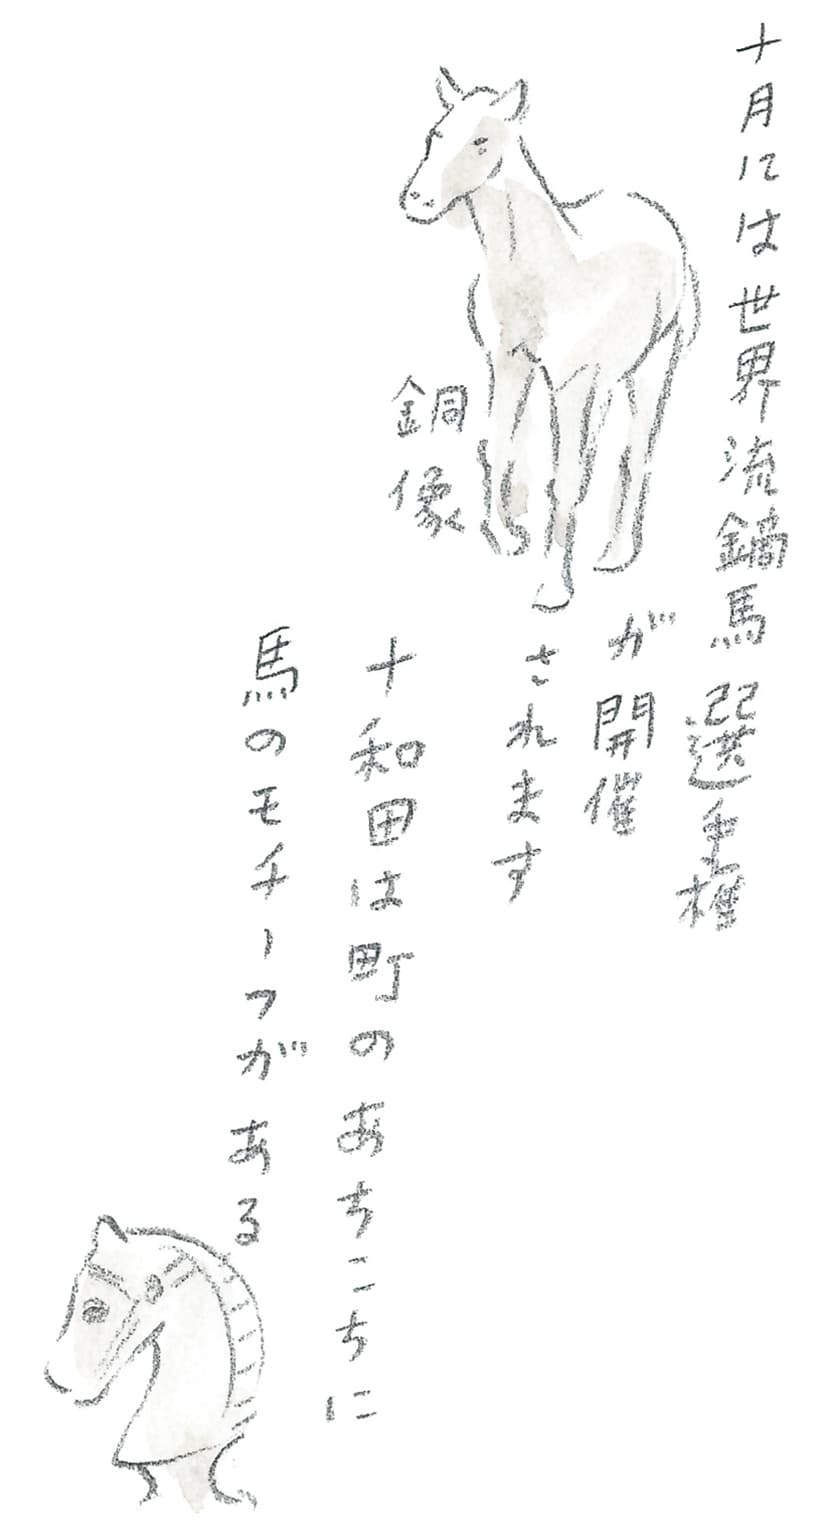 十月には世界流鏑馬選手権
が開催
されます
銅像
十和田は町のあちこちに
馬のモチーフがある